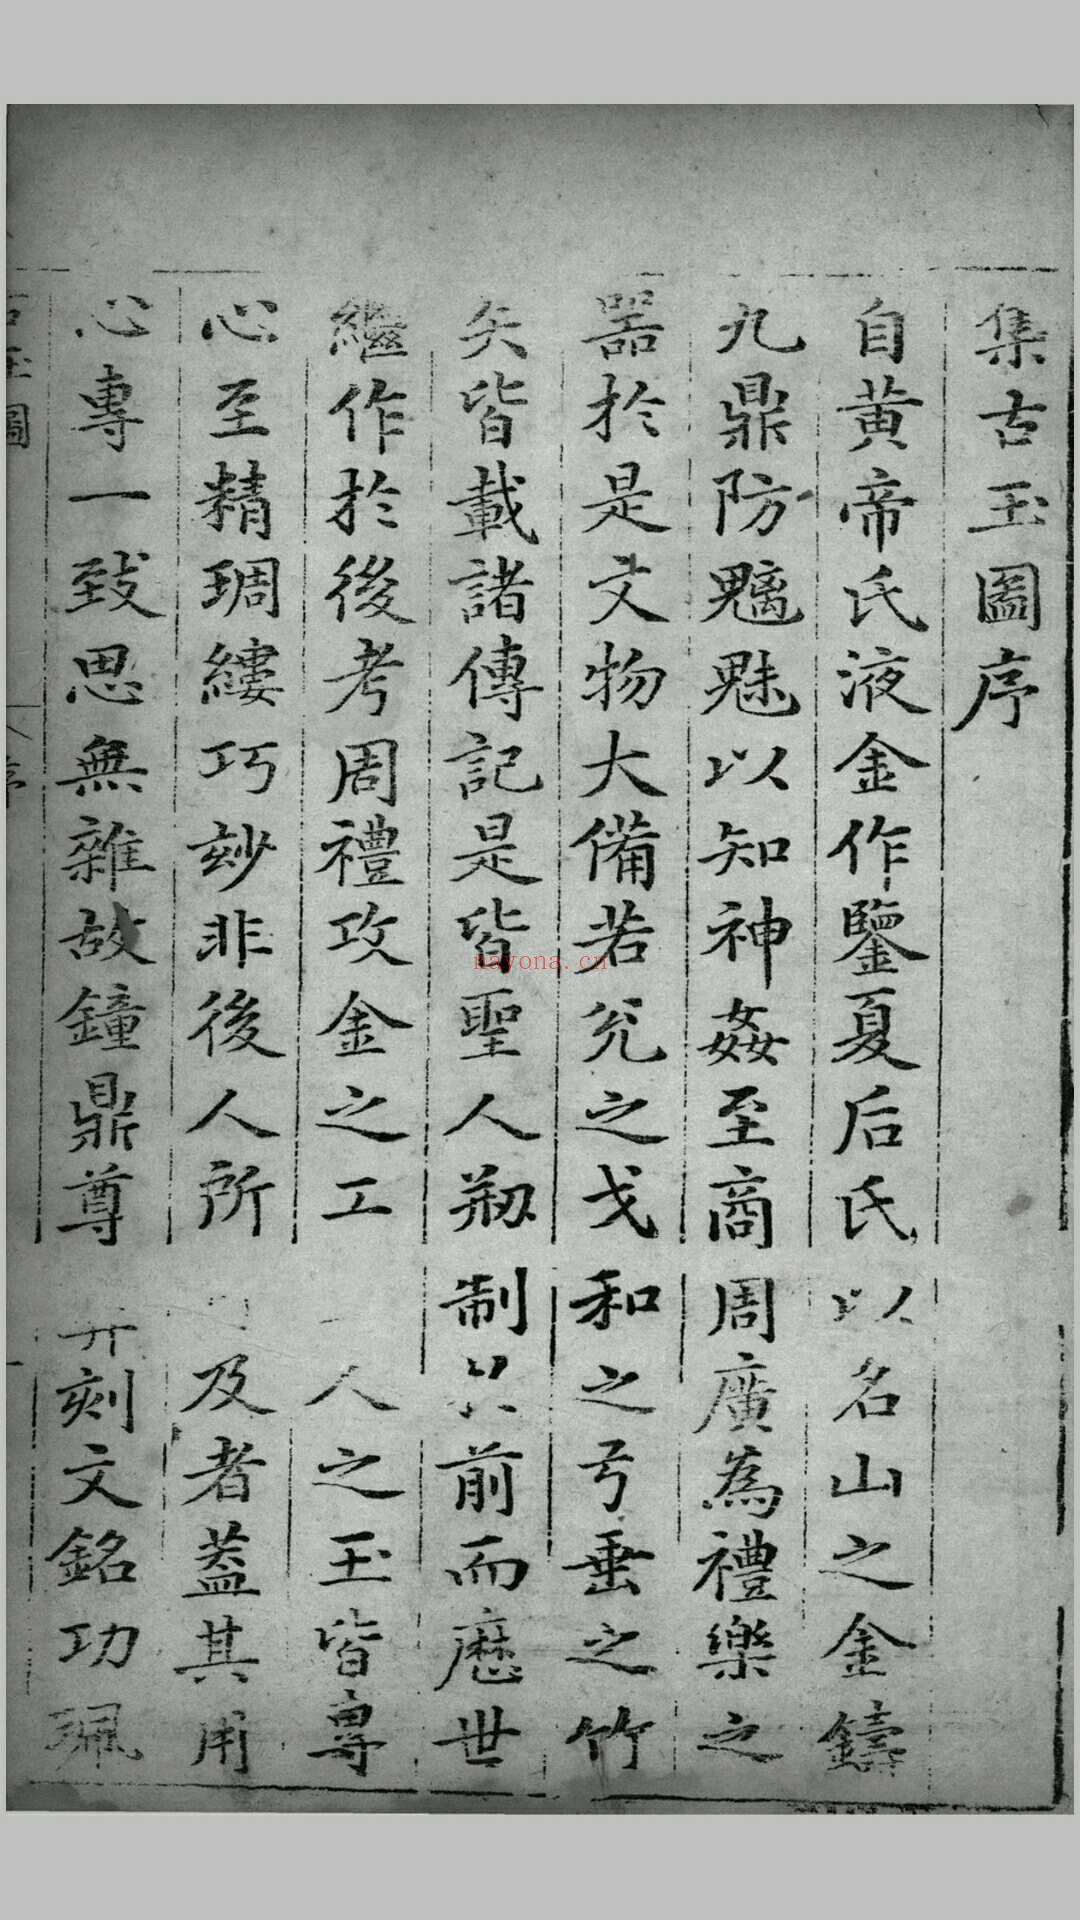 集古玉圖序
自黄帝氏液金作鑒夏后氏以名山之金鑄
九鼎防魑魅以知神姦至商周廣為禮樂之
噐於是文物大備若兊之戈和之弓垂之竹
矢皆載諸傳記是皆聖人剏制於前而歷世
繼作於後考周禮攻金之工人之玉皆專
心至精琱縷巧玅非後人所及者葢其用
心專一致思無雜故鐘鼎尊刻文銘功珮
古玉圖
序
一
nayona.cn